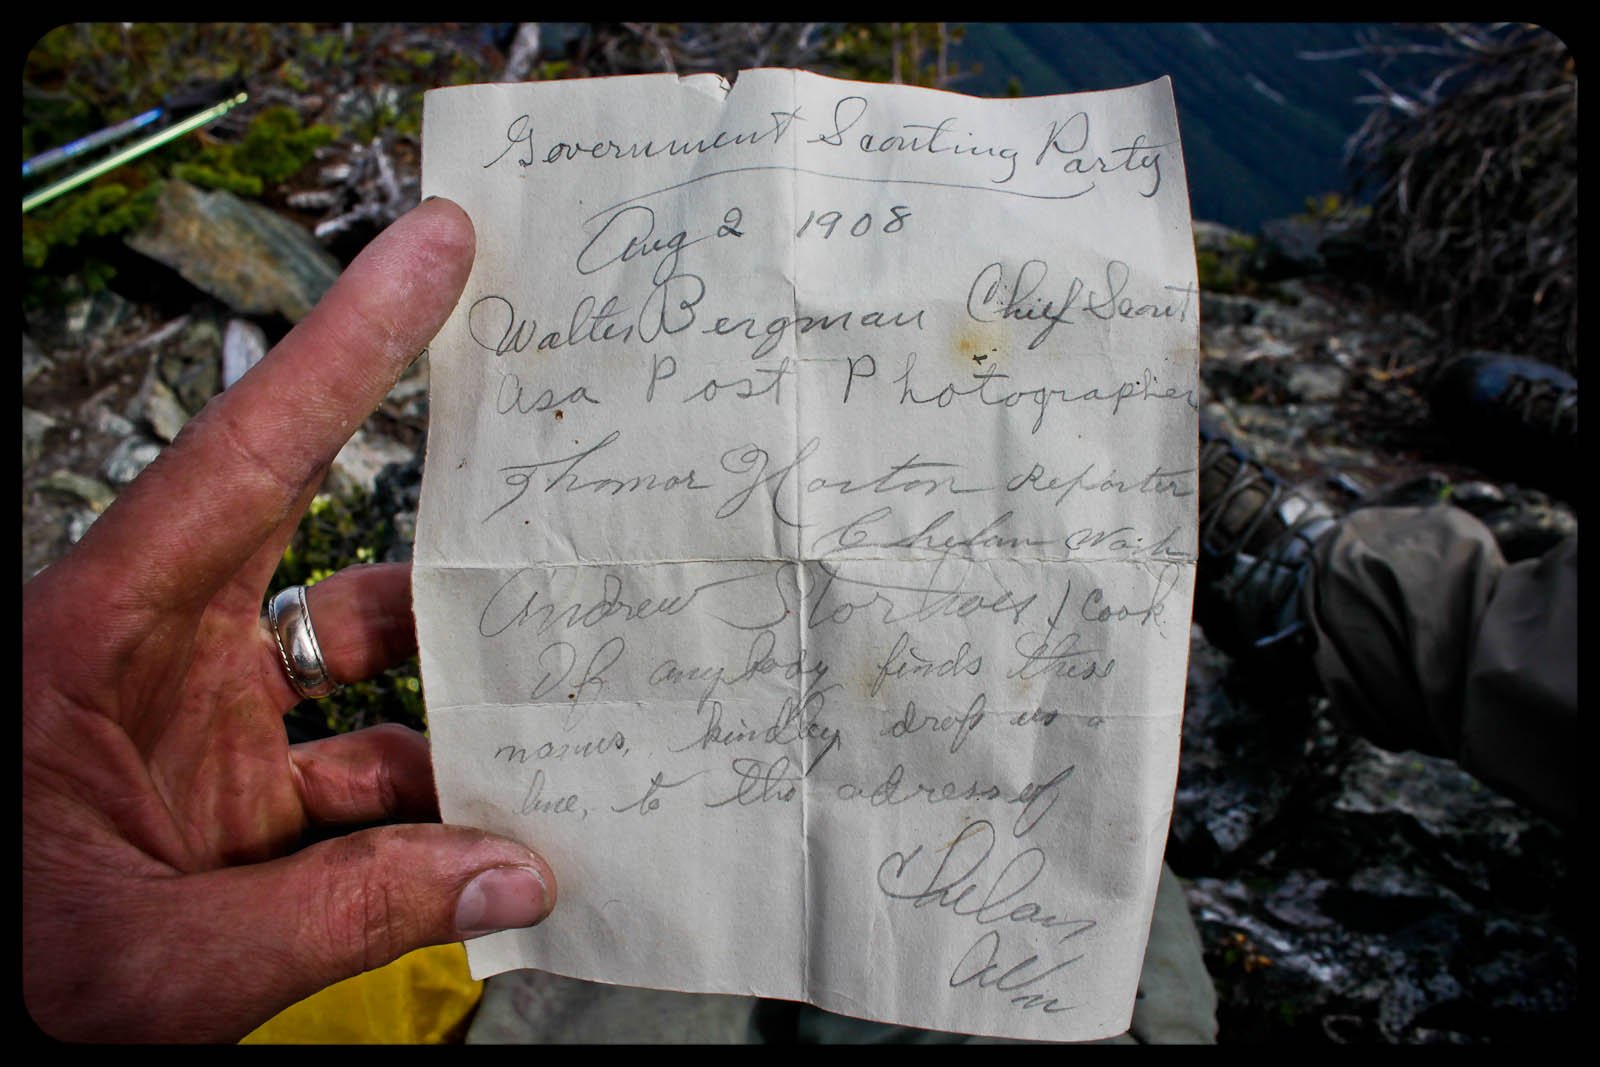 Government Scouting Party
Aug 2 1908
Walter Bergman Chief Scout
Asa Post Photographer
Thomas Horton Reporter
Chelan Wash
Andrew / Cook
If anybody finds these
names, kindley drop us a
line, to the adress of
Chelan